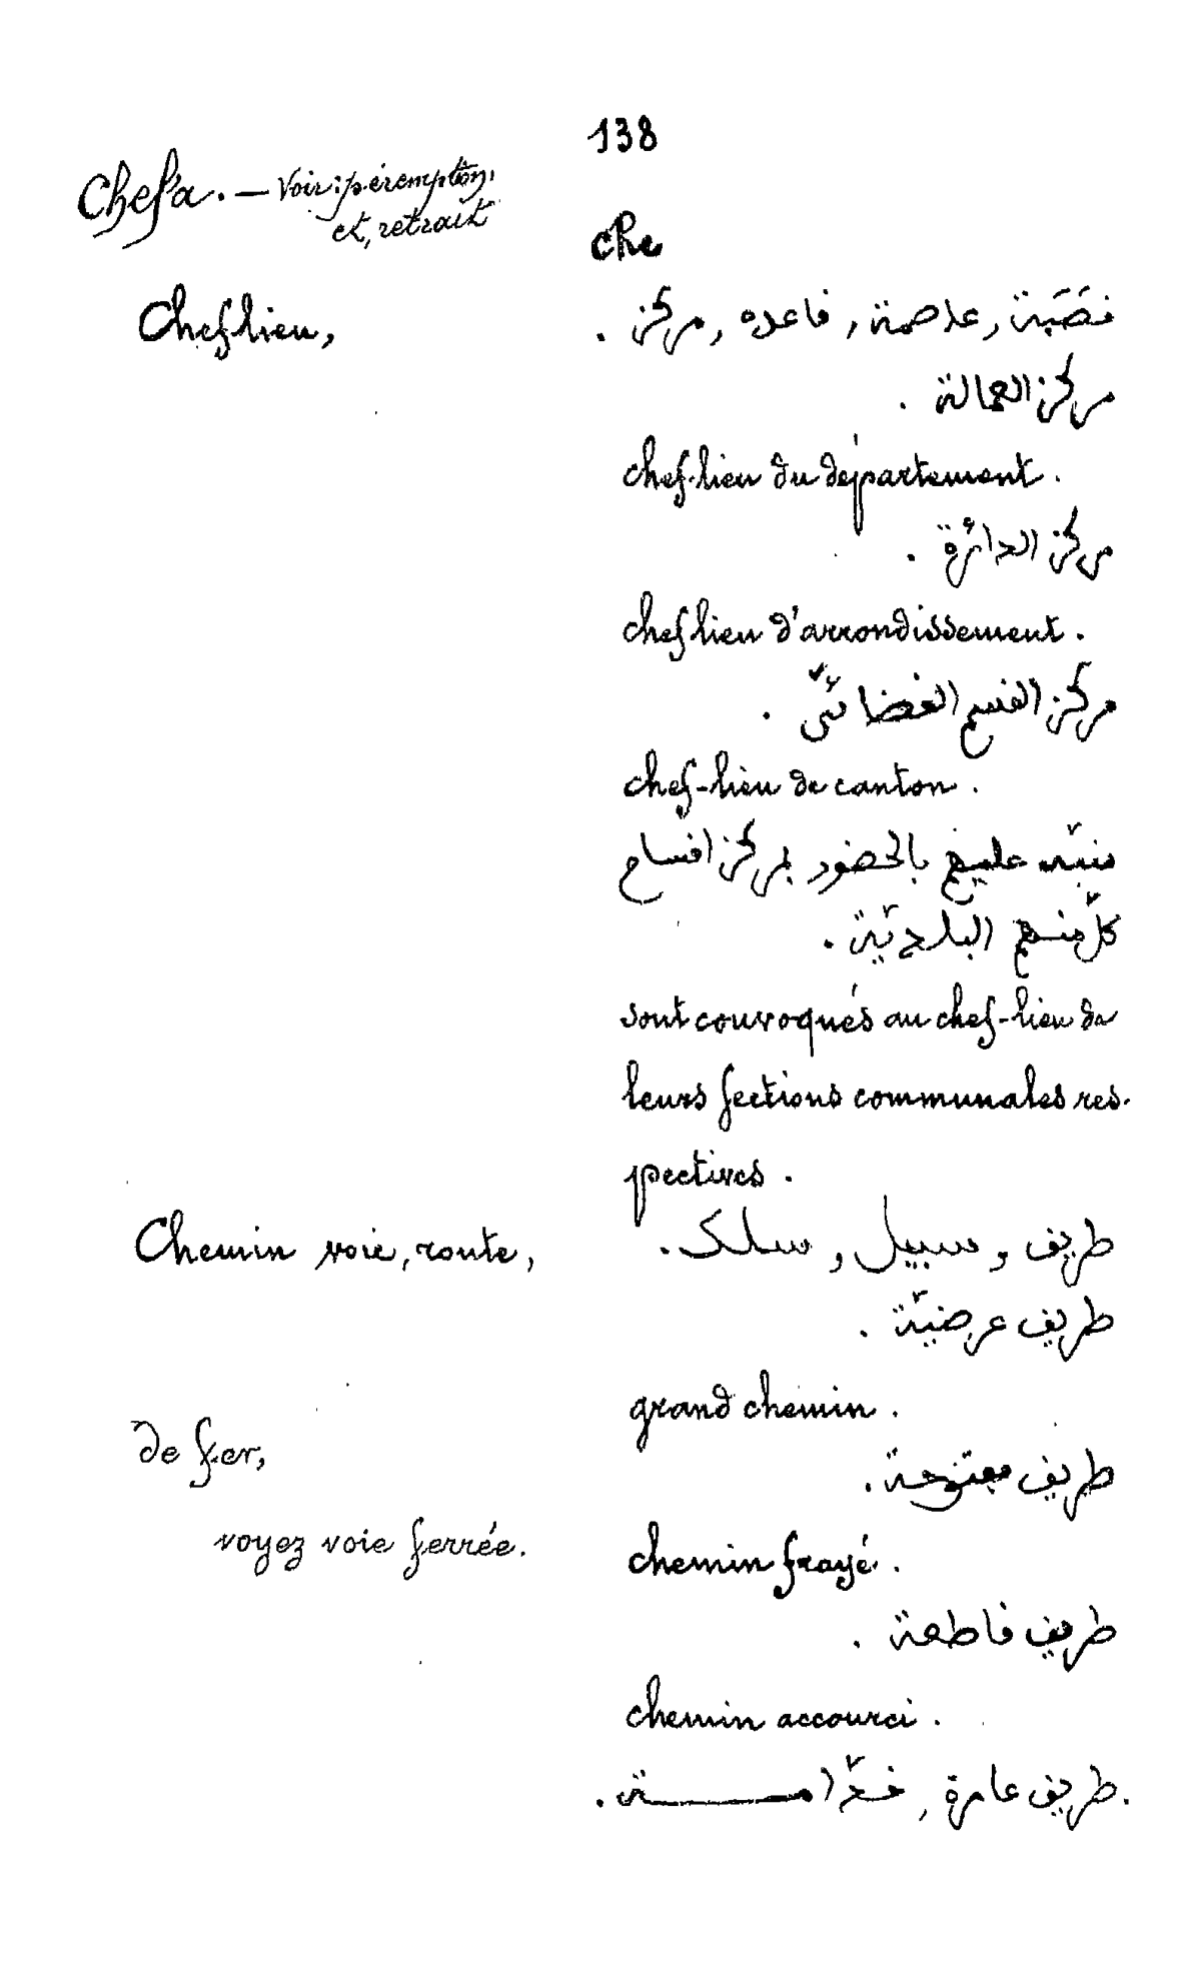 138
Chef'a. — Voir: péremption,
et, retrait
che
Chef lieu,
قصَبَة, عاصمة, قاعده, مركز .
مركز العمالة .
chef-lieu du département .
مركز الدائرة .
chef lieu d'arrondissement .
مركز القسم القضائىّ .
chef-lieu de canton .
منبّه عليهم بالحضور بمركز اقسام
كلّ منهم البلديّة .
sont convoqués au chef-lieu de
leurs sections communales res-
pectives .
Chemin voie, route,
طريق , سبيل , سلك .
طريق عرضيّة .
grand chemin .
de fer,
طريق مفتوحة .
voyez voie ferrée.
chemin frayé .
طريق قاطعة .
chemin accourci .
طريق عامرة , خدّامـــة .